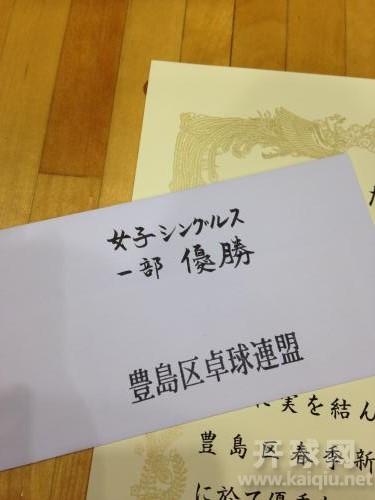 女子シングルス
一部 優勝
豊島区卓球連盟
に実を結ん
豊島区春季新
に於て優秀
开球网
www.kaiqiu.net